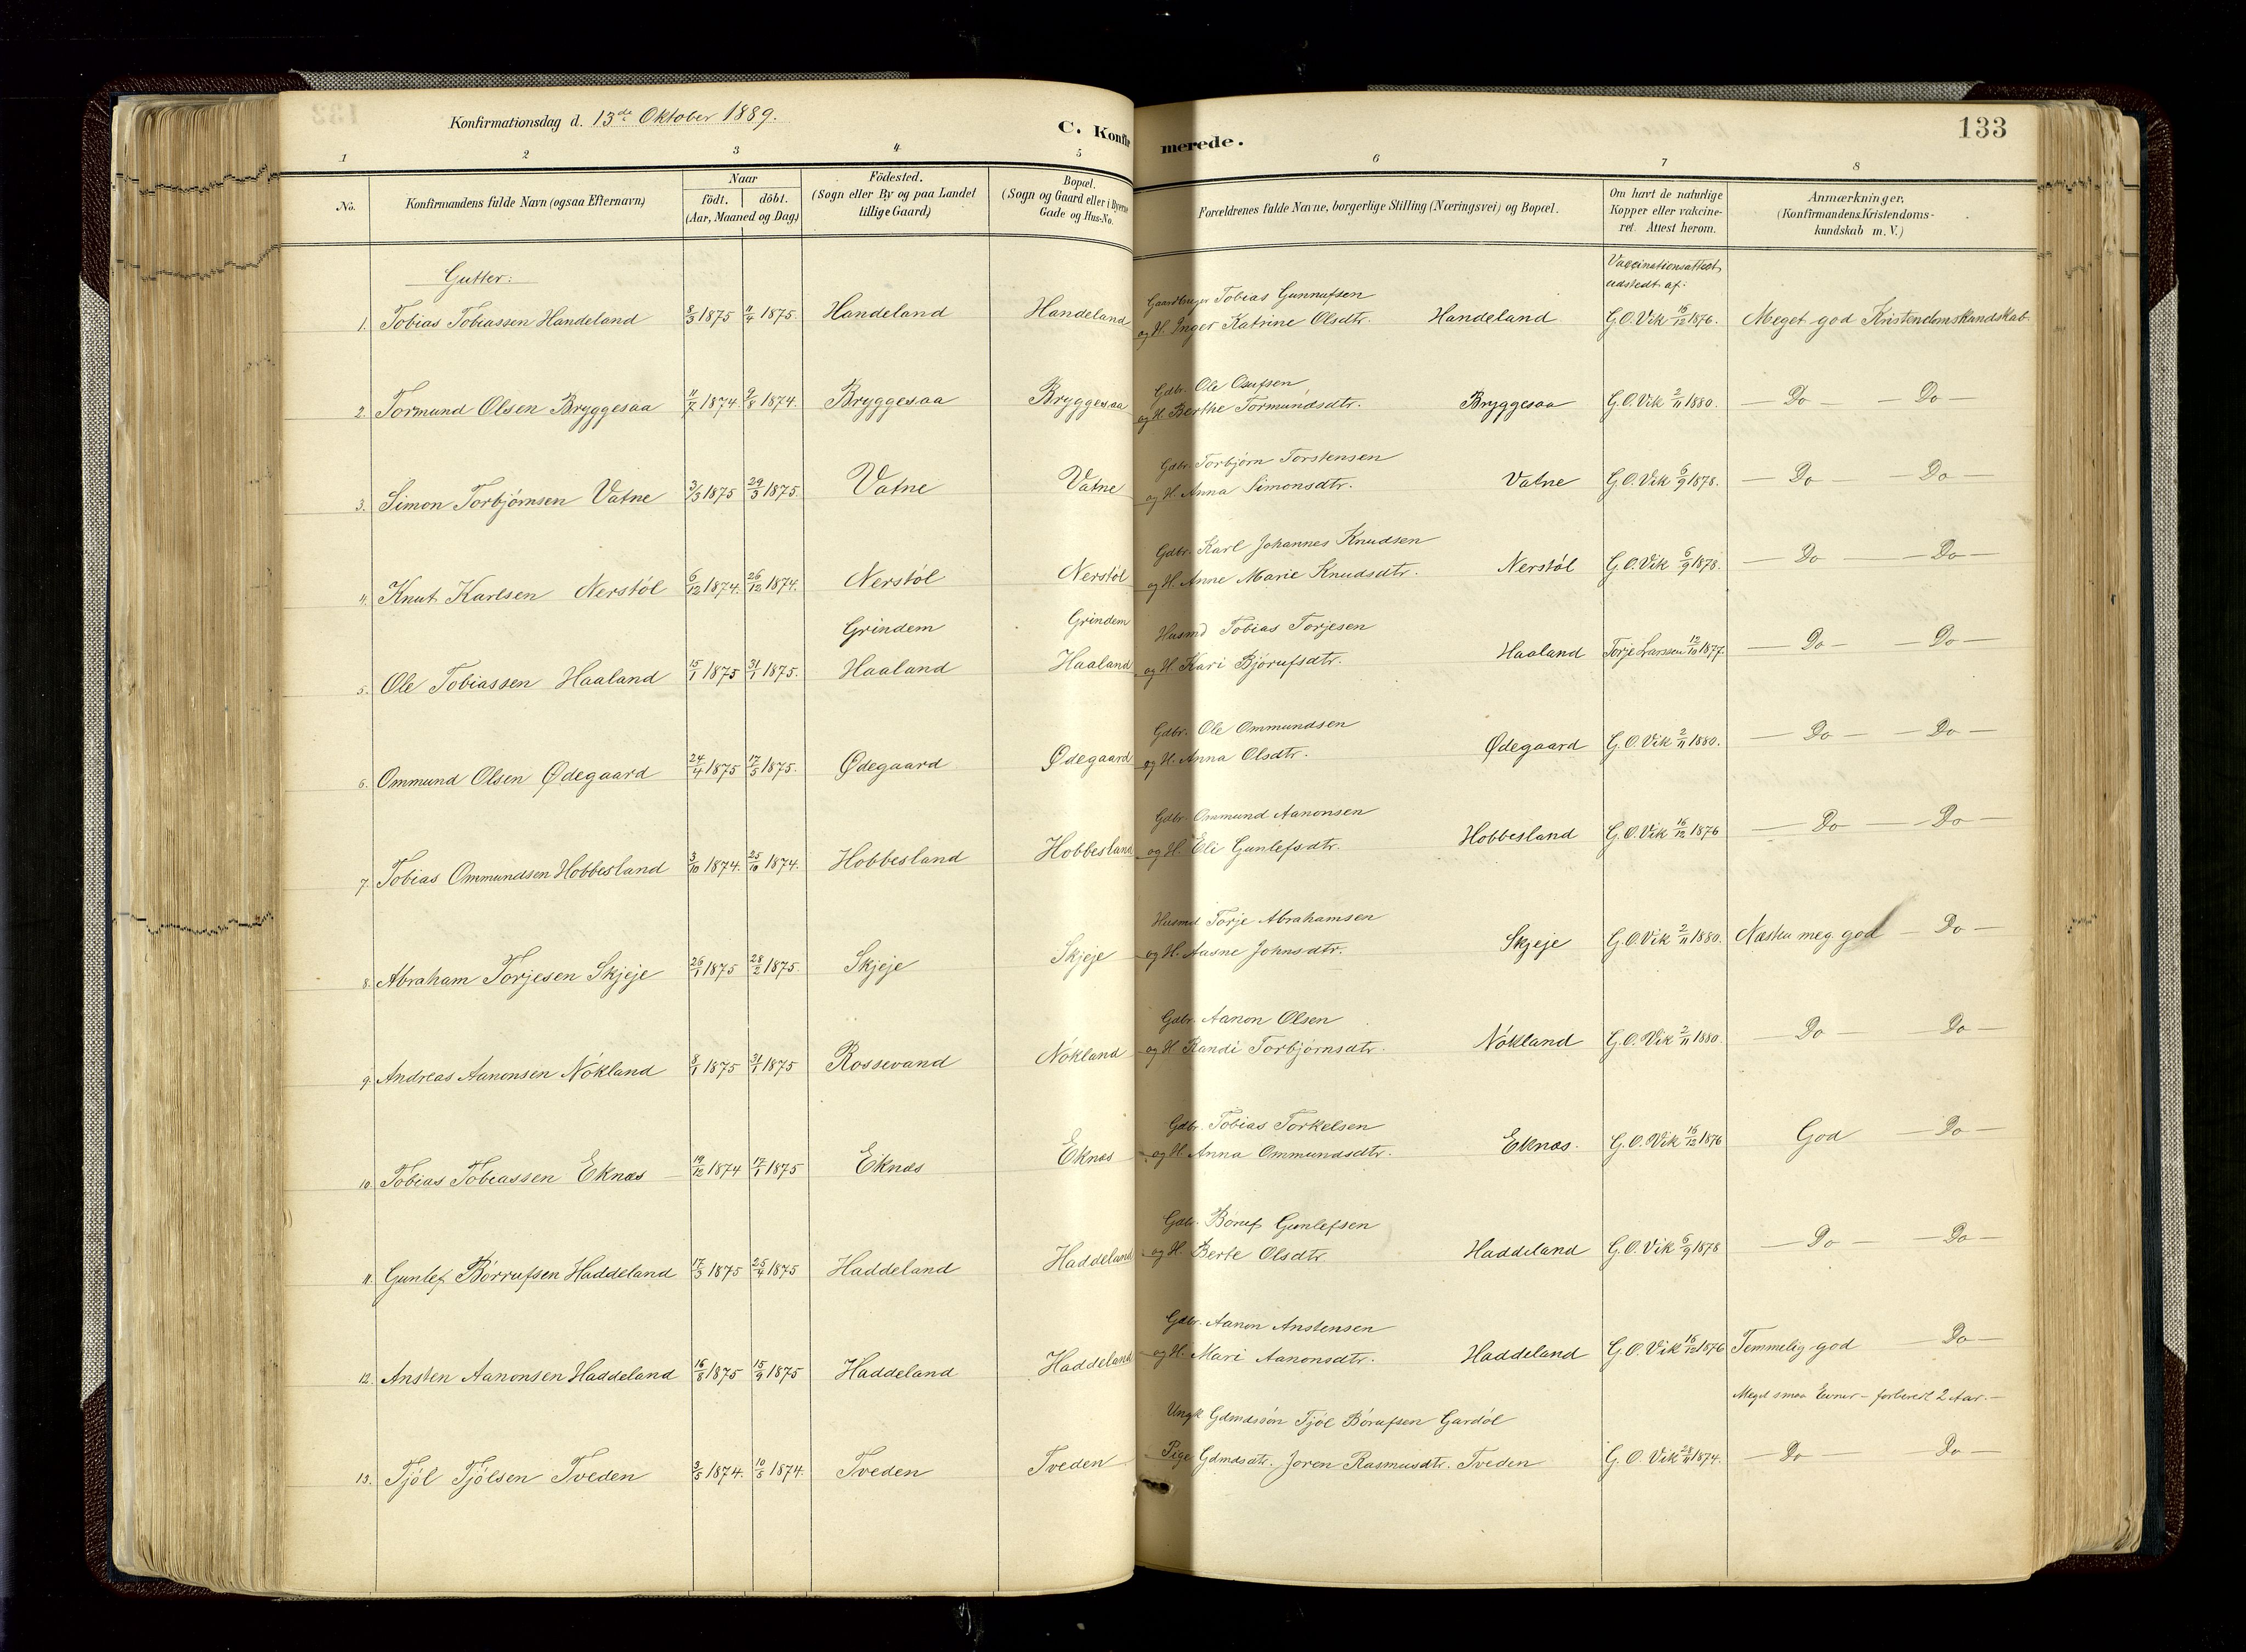 Konfirmationsdag d. 13de Oktober 1889.
C. Konfirmerede.
133
1 2 3 4 5 6 7 8
No.
Konfirmandens fulde Navn (ogsaa Efternavn)
Naar
födt. döbt.
(Aar, Maaned og Dag)
Födested.
(Sogn eller By og paa Landet
tillige Gaard)
Bopæl.
(Sogn og Gaard eller i Byerne
Gade og Hus-No.
Forældrenes fulde Navne, borgerlige Stilling (Næringsvei) og Bopæl.
Om havt de naturlige
Kopper eller vakcine-
ret. Attest herom.
Anmærkninger,
(Konfirmandens Kristendoms-
kundskab m. V.)
Gutter:
Vaccinationsattest
udstedt af:
Gaardbruger Tobias Gunnufsen
1. Tobias Tobiassen Handeland 8/3 1875 11/4 1875. Handeland Handeland og H. Inger Katrine Olsdtr. Handeland G.O. Vik 16/12 1876. Meget god Kristendomskundskab.
Gdbr. Ole Osufsen
2. Tormund Olsen Bryggesaa 11/7 1874. 9/8 1874. Bryggesaa Bryggesaa og H. Berthe Tormundsdtr. Bryggesaa G.O. Vik 2/11 1880. — Do — — Do —
Gdbr. Torbjörn Torstensen
3. Simon Torbjörnsen Vatne 3/3 1875 29/3 1875. Vatne Vatne og H. Anna Simonsdtr. Vatne G.O. Vik 6/9 1878. — Do — — Do —
Gdbr. Karl Johannes Knudsen
4. Knut Karlsen Nerstöl 6/12 1874. 26/12 1874. Nerstöl Nerstöl og H. Anne Marie Knudsdtr. Nerstöl G.O. Vik 6/9 1878. — Do — — Do —
Grindem Grindem Husmd Tobias Torjesen
5. Ole Tobiassen Haaland 15/1 1875 31/1 1875. Haaland Haaland og H. Kari Björufsdtr. Haaland Torje Larssen 12/10 1877. — Do — — Do —
Gdbr. Ole Ommundsen
6. Ommund Olsen Ødegaard 24/4 1875 17/5 1875. Ødegaard Ødegaard og H. Anna Olsdtr. Ødegaard G.O. Vik 2/11 1880. — Do — — Do —
Gdbr. Ommund Aanonsen
7. Tobias Ommundsen Hobbesland 3/10 1874. 25/10 1874. Hobbesland Hobbesland og H. Eli Gunlefsdtr. Hobbesland G.O. Vik 16/12 1876 — Do — — Do —
Husmd Torje Abrahamsen
8. Abraham Torjesen Skjeje 26/1 1875 28/2 1875. Skjeje Skjeje og H. Aasne Johnsdtr. Skjeje G.O. Vik 2/11 1880. Næsten meg. god — Do —
Gdbr. Aanon Olsen
9. Andreas Aanonsen Nökland 8/1 1875 31/1 1875 Rossevand Nökland og H. Randi Torbjörnsdtr. Nökland G.O. Vik 2/11 1880. — Do — — Do —
Gdbr. Tobias Torkelsen
10. Tobias Tobiassen Eknæs 19/12 1874 17/1 1875 Eknæs Eknæs og H. Anna Ommundsdtr. Eknæs. G.O. Vik 16/12 1876 God — Do —
Gdbr.Böruf Gunlefsen
11. Gunlef Börrufsen Haddeland 17/3 1875 25/4 1875 Haddeland Haddeland og H. Berte Olsdtr. Haddeland G.O. Vik 6/9 1878 — Do — — Do —
Gdbr. Aanon Anstensen
12. Ansten Aanonsen Haddeland 16/8 1875 15/9 1875 Haddeland Haddeland og H. Mari Aanonsdtr. Haddeland G.O. Vik 16/12 1876 Temmelig god — Do —
Meget smaa Evner — forberedt 2 Aar. —
Ungk Gdmdssön Tjöl Börufsen Gardöl
13. Tjöl Tjölsen Tveden 3/5 1874. 10/5 1874. Tveden Tveden Pige Gdmdsdtr. Joren Rasmusdtr. Tveden G.O. Vik 28/11 1874. — Do — — Do —